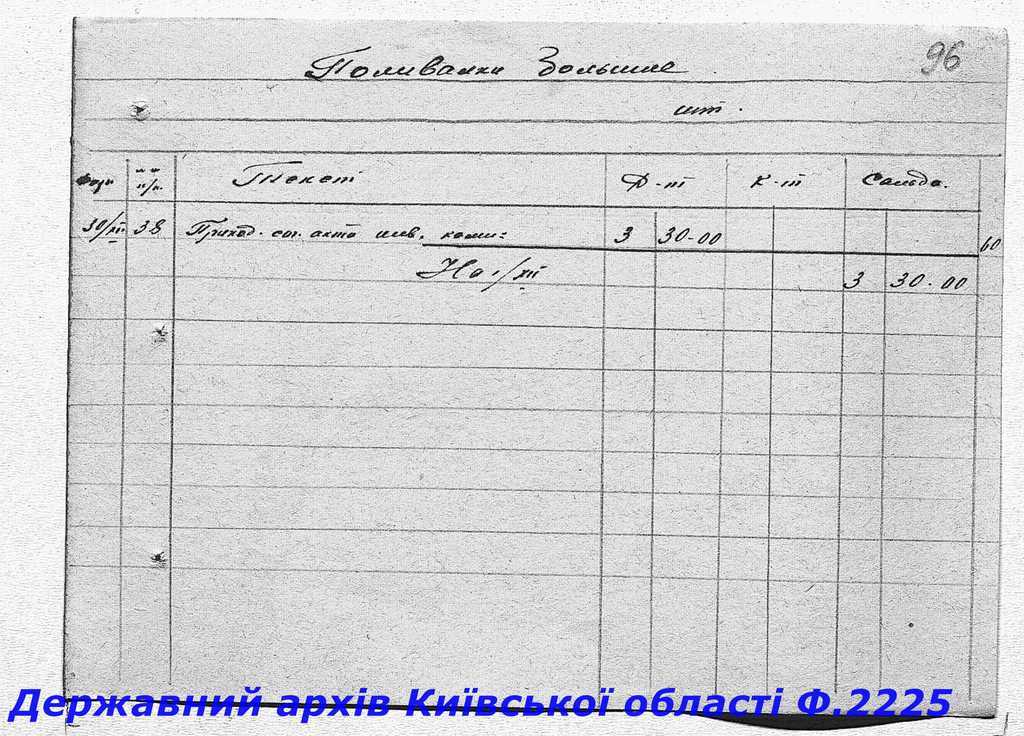 96
Поливалки Большие
шт.
№№ п/п. Текст Д-т К-т Сальдо.
30/XI 38 Приход. сог. акта инв. комис: 3 30-00 60
На 1/XII 3 30.00
Державний архів Київської області Ф.2225